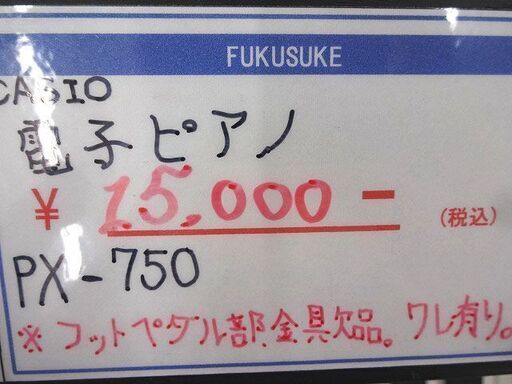 FUKUSUKE
CASIO
電子ピアノ
¥ 15,000- (税込)
PX-750
※フットペダル部金具欠品。ワレ有り。